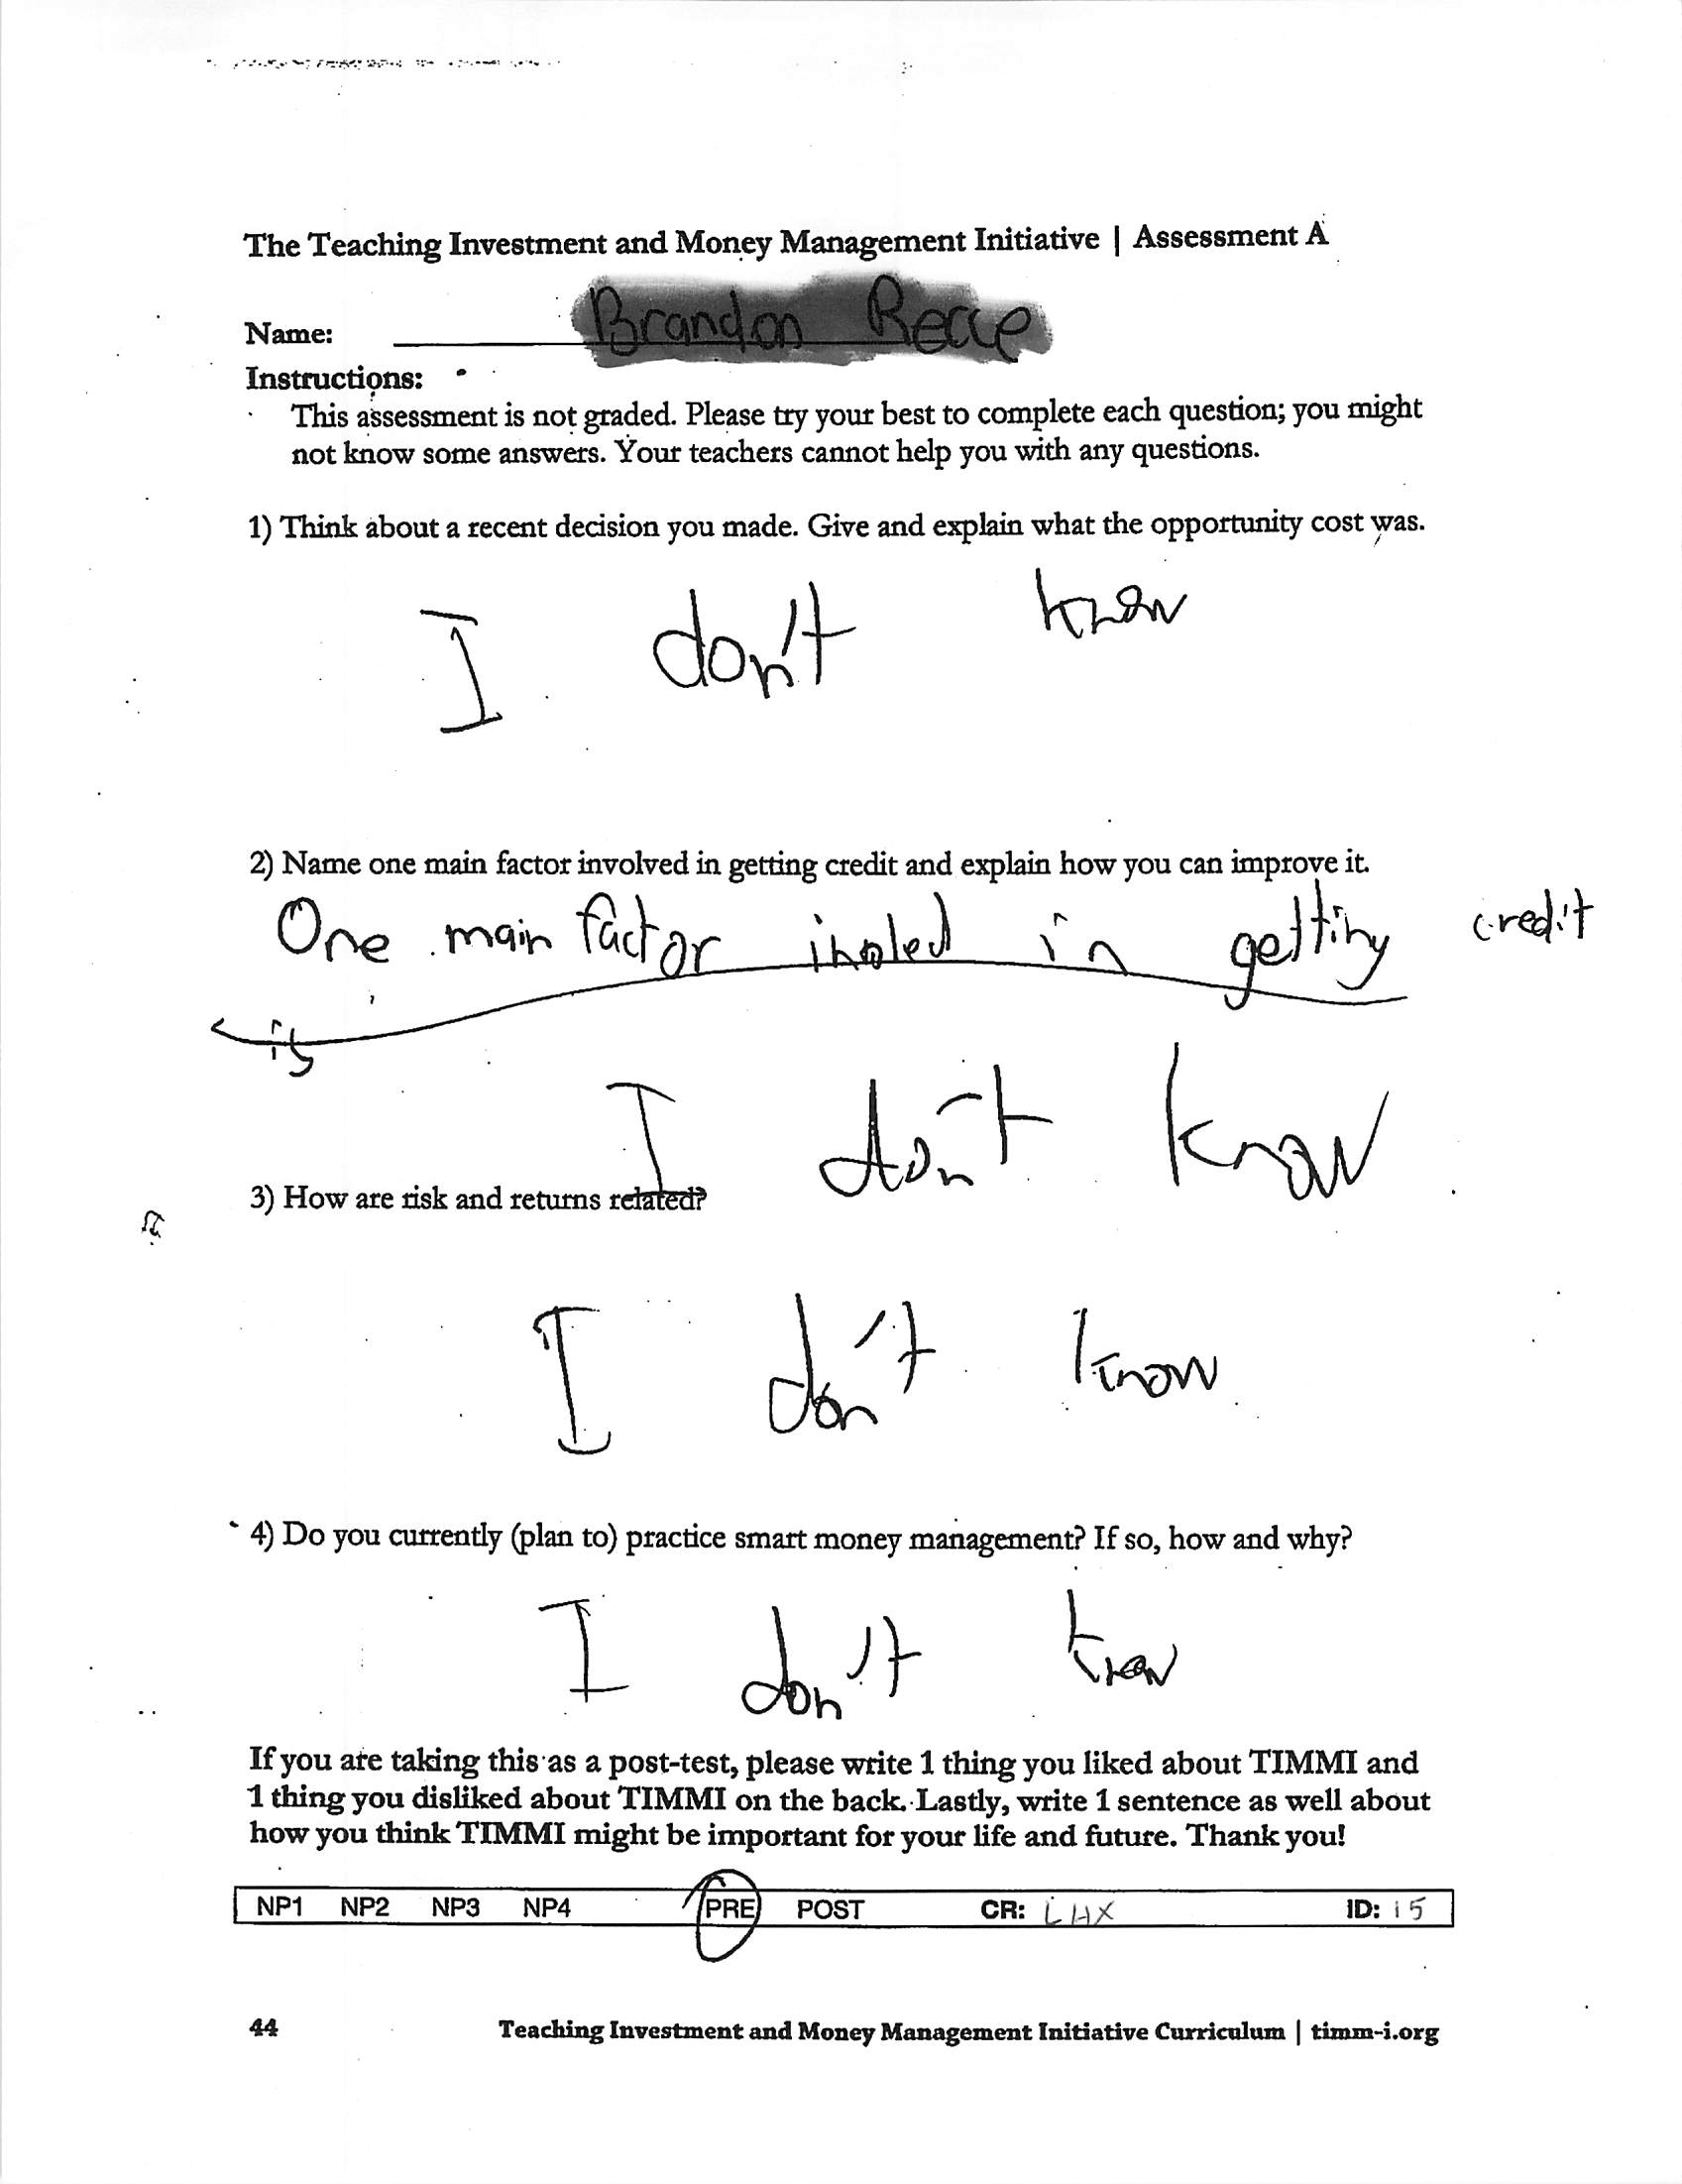 The Teaching Investment and Money Management Initiative | Assessment A
Name: Brandon
Instructions:
This assessment is not graded. Please try your best to complete each question; you might
not know some answers. Your teachers cannot help you with any questions.
1) Think about a recent decision you made. Give and explain what the opportunity cost was.
I don't know
2) Name one main factor involved in getting credit and explain how you can improve it.
One main factor in getting credit
is
I don't know
3) How are risk and returns related?
I don't know
4) Do you currently (plan to) practice smart money management? If so, how and why?
I don't know
If you are taking this as a post-test, please write 1 thing you liked about TIMMI and
1 thing you disliked about TIMMI on the back. Lastly, write 1 sentence as well about
how you think TIMMI might be important for your life and future. Thank you!
NP1 NP2 NP3 NP4 PRE POST CR: LHX ID: 15
44 Teaching Investment and Money Management Initiative Curriculum | timm-i.org